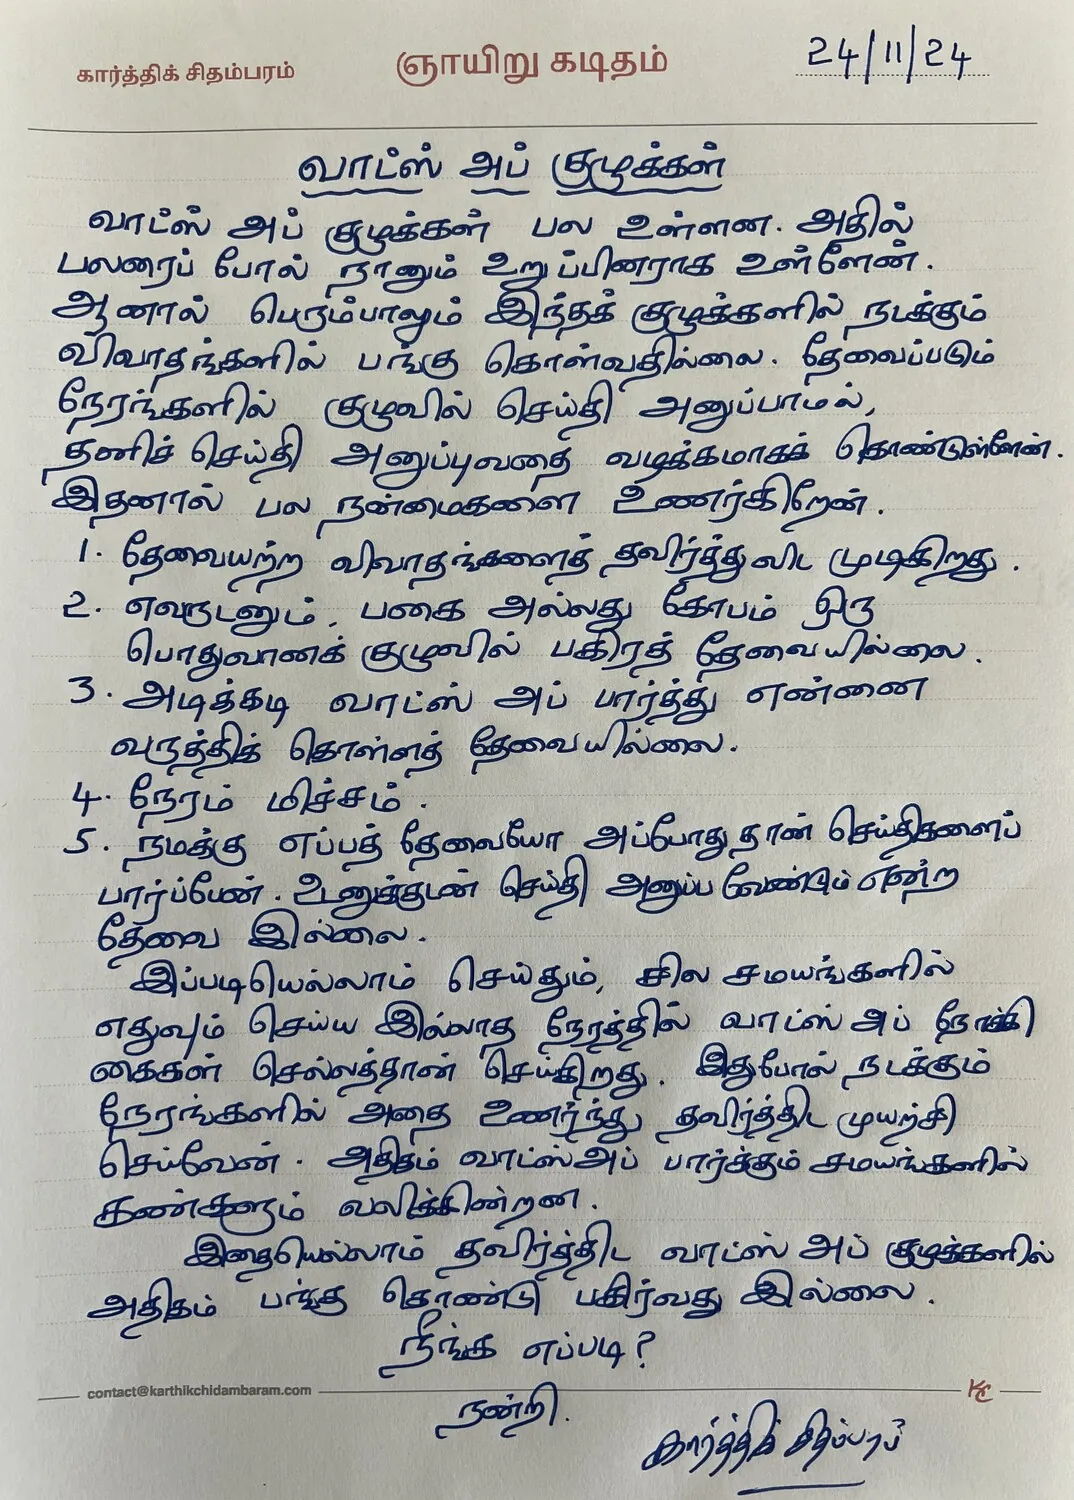 கார்த்திக் சிதம்பரம்
ஞாயிறு கடிதம்
24/11/24
வாட்ஸ் அப் குழுக்கள்
வாட்ஸ் அப் குழுக்கள் பல உள்ளன. அதில்
பலரைப் போல் நானும் உறுப்பினராக உள்ளேன்.
ஆனால் பெரும்பாலும் இந்தக் குழுக்களில் நடக்கும்
விவாதங்களில் பங்கு கொள்வதில்லை. தேவைப்படும்
நேரங்களில் குழுவில் செய்தி அனுப்பாமல்,
தனிச் செய்தி அனுப்புவதை வழக்கமாகக் கொண்டுள்ளேன்.
இதனால் பல நன்மைகளை உணர்கிறேன்.
1. தேவையற்ற விவாதங்களைத் தவிர்த்து விட முடிகிறது.
2. எவருடனும், பகை அல்லது கோபம் ஒரு
பொதுவானக் குழுவில் பகிரத் தேவையில்லை.
3. அடிக்கடி வாட்ஸ் அப் பார்த்து என்னை
வருத்திக் கொள்ளத் தேவையில்லை.
4. நேரம் மிச்சம்.
5. நமக்கு எப்பத் தேவையோ அப்போது தான் செய்திகளைப்
பார்ப்பேன். உனுக்குடன் செய்தி அனுப்ப வேண்டும் என்ற
தேவை இல்லை.
இப்படியெல்லாம் செய்தும், சில சமயங்களில்
எதுவும் செய்ய இல்லாத நேரத்தில் வாட்ஸ் அப் நோக்கி
கைகள் செல்லத்தான் செய்கிறது. இதுபோல் நடக்கும்
நேரங்களில் அதை உணர்ந்து தவிர்த்திட முயற்சி
செய்வேன். அதிகம் வாட்ஸ் அப் பார்க்கும் சமயங்களில்
கண்களும் வலிக்கின்றன.
இதையெல்லாம் தவிர்த்திட வாட்ஸ் அப் குழுக்களில்
அதிகம் பங்கு கொண்டு பகிர்வது இல்லை.
நீங்க எப்படி?
contact@karthikchidambaram.com
KC
நன்றி.
கார்த்திக் சிதம்பரம்